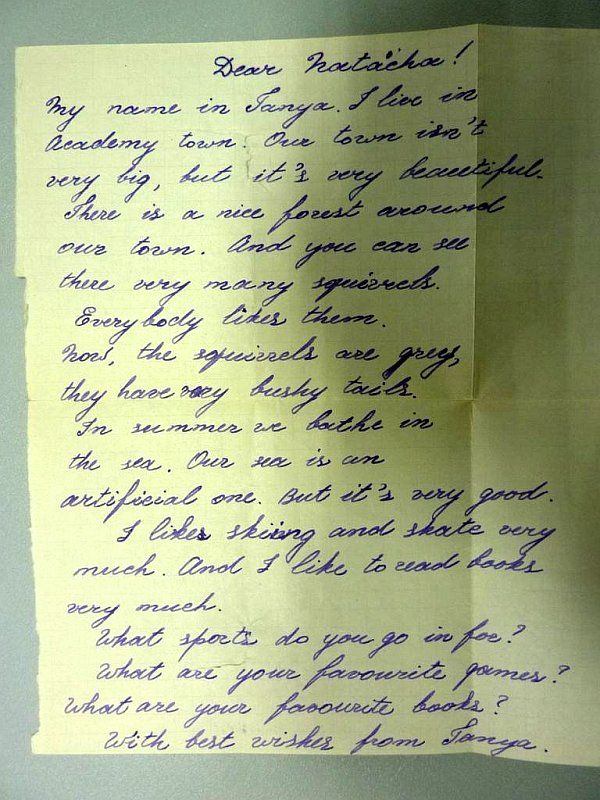 Dear Natacha!
My name in Tanya. I live in
Academy town. Our town isn't
very big, but it's very beautiful.
There is a nice forest around
our town. And you can see
there very many squirrels.
Everybody likes them.
Now, the squirrels are grey,
they have very bushy tails.
In summer we bathe in
the sea. Our sea is an
artificial one. But it's very good.
I likes skiing and skate very
much. And I like to read books
very much.
What sports do you go in for?
What are your favourite games?
What are your favourite books?
With best wishes from Tanya.